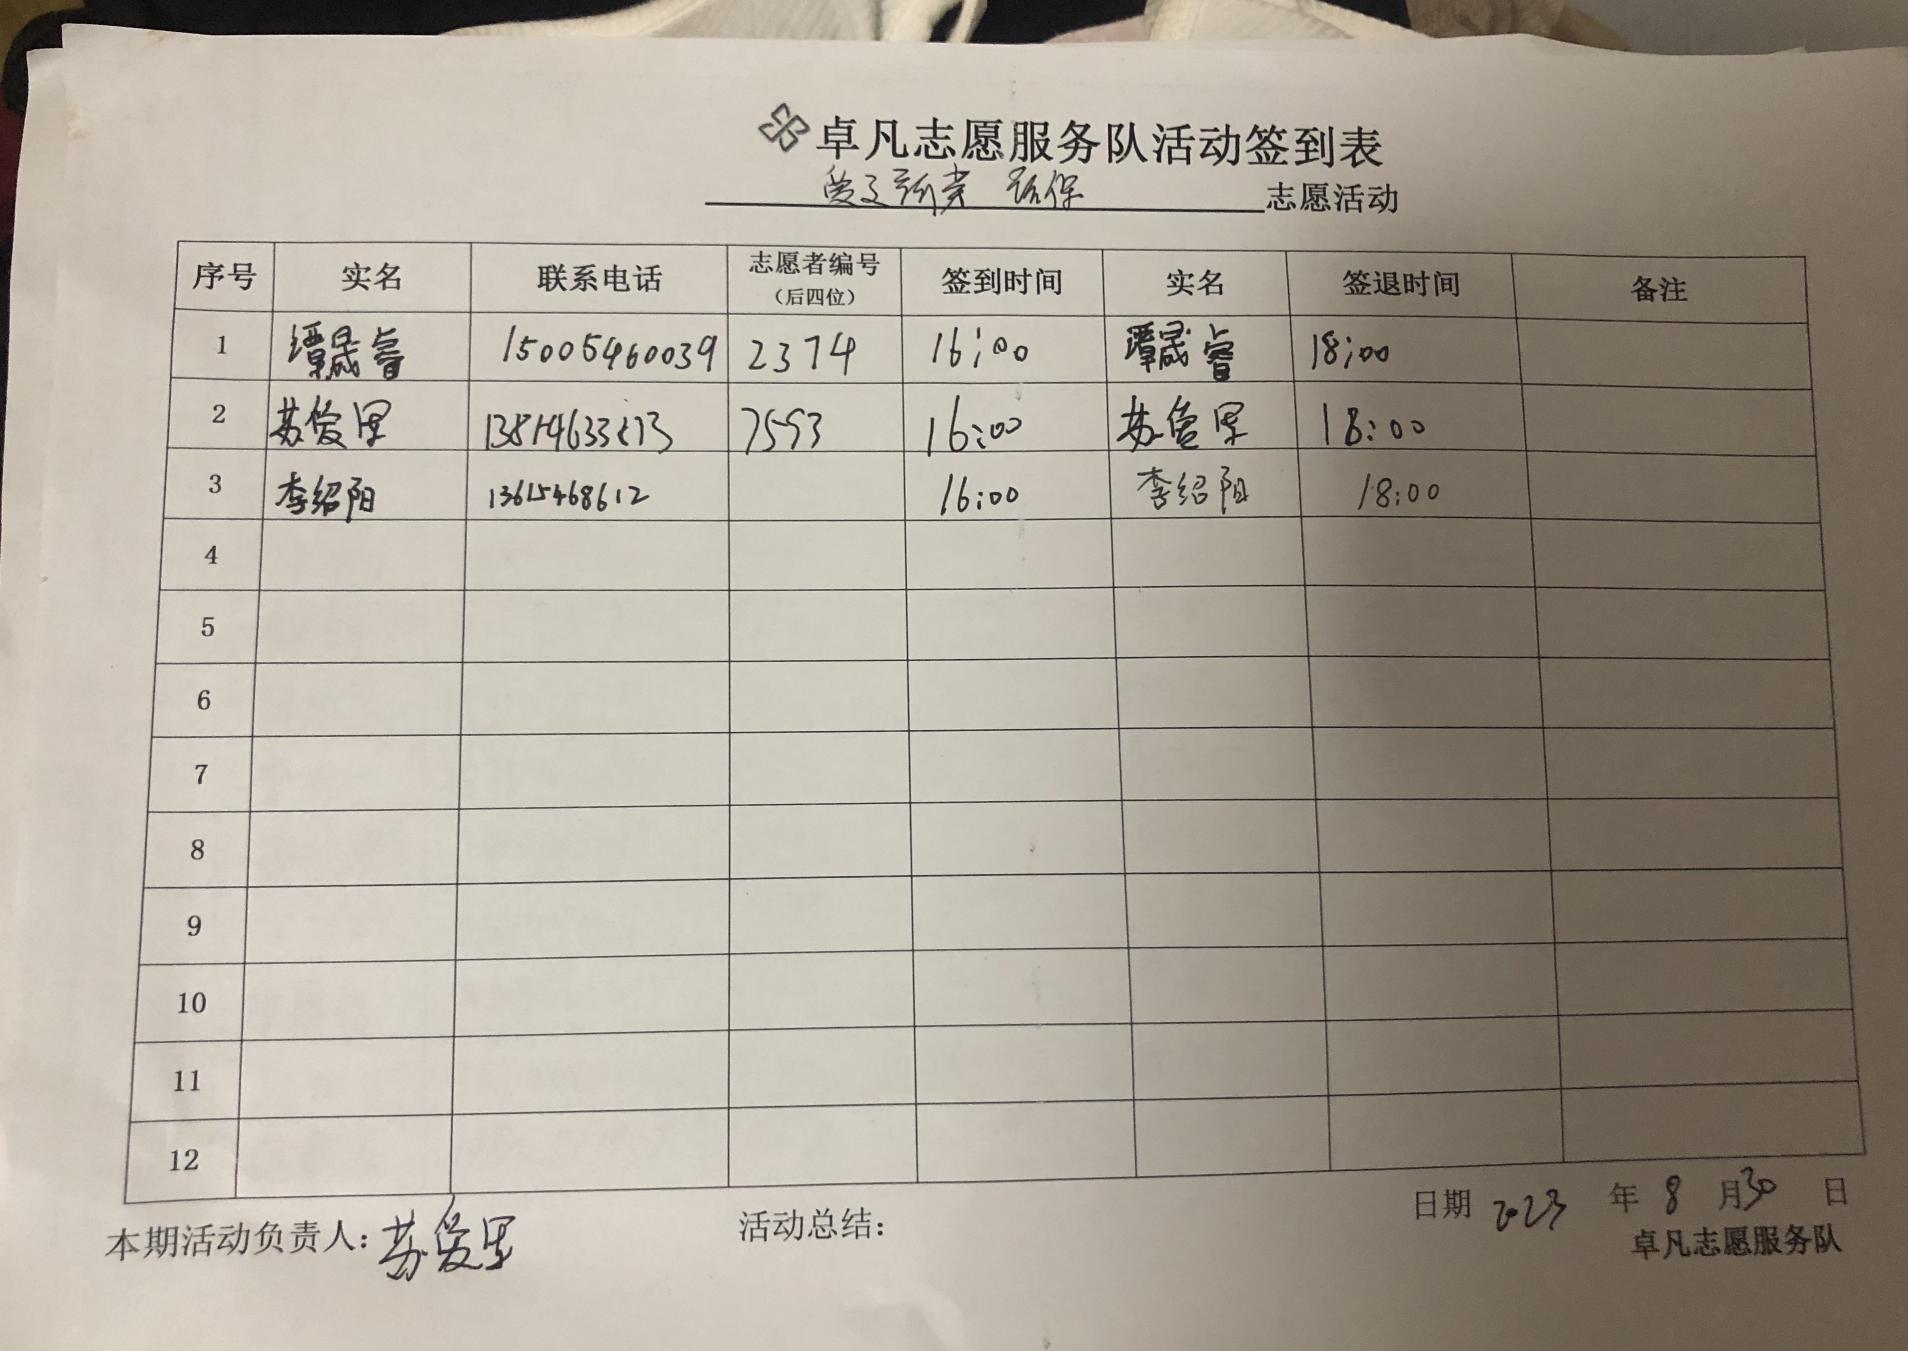 卓凡志愿服务队活动签到表
志愿活动
序号 实名 联系电话 志愿者编号（后四位） 签到时间 实名 签退时间 备注
1 谭晟睿 15005460039 2374 16:00 谭晟睿 18:00
2 苏 7593 16:00 苏 18:00
3 李绍阳 13615468612 16:00 李绍阳 18:00
4
5
6
7
8
9
10
11
12
本期活动负责人: 苏 活动总结: 日期 2023 年 8 月 30 日
卓凡志愿服务队